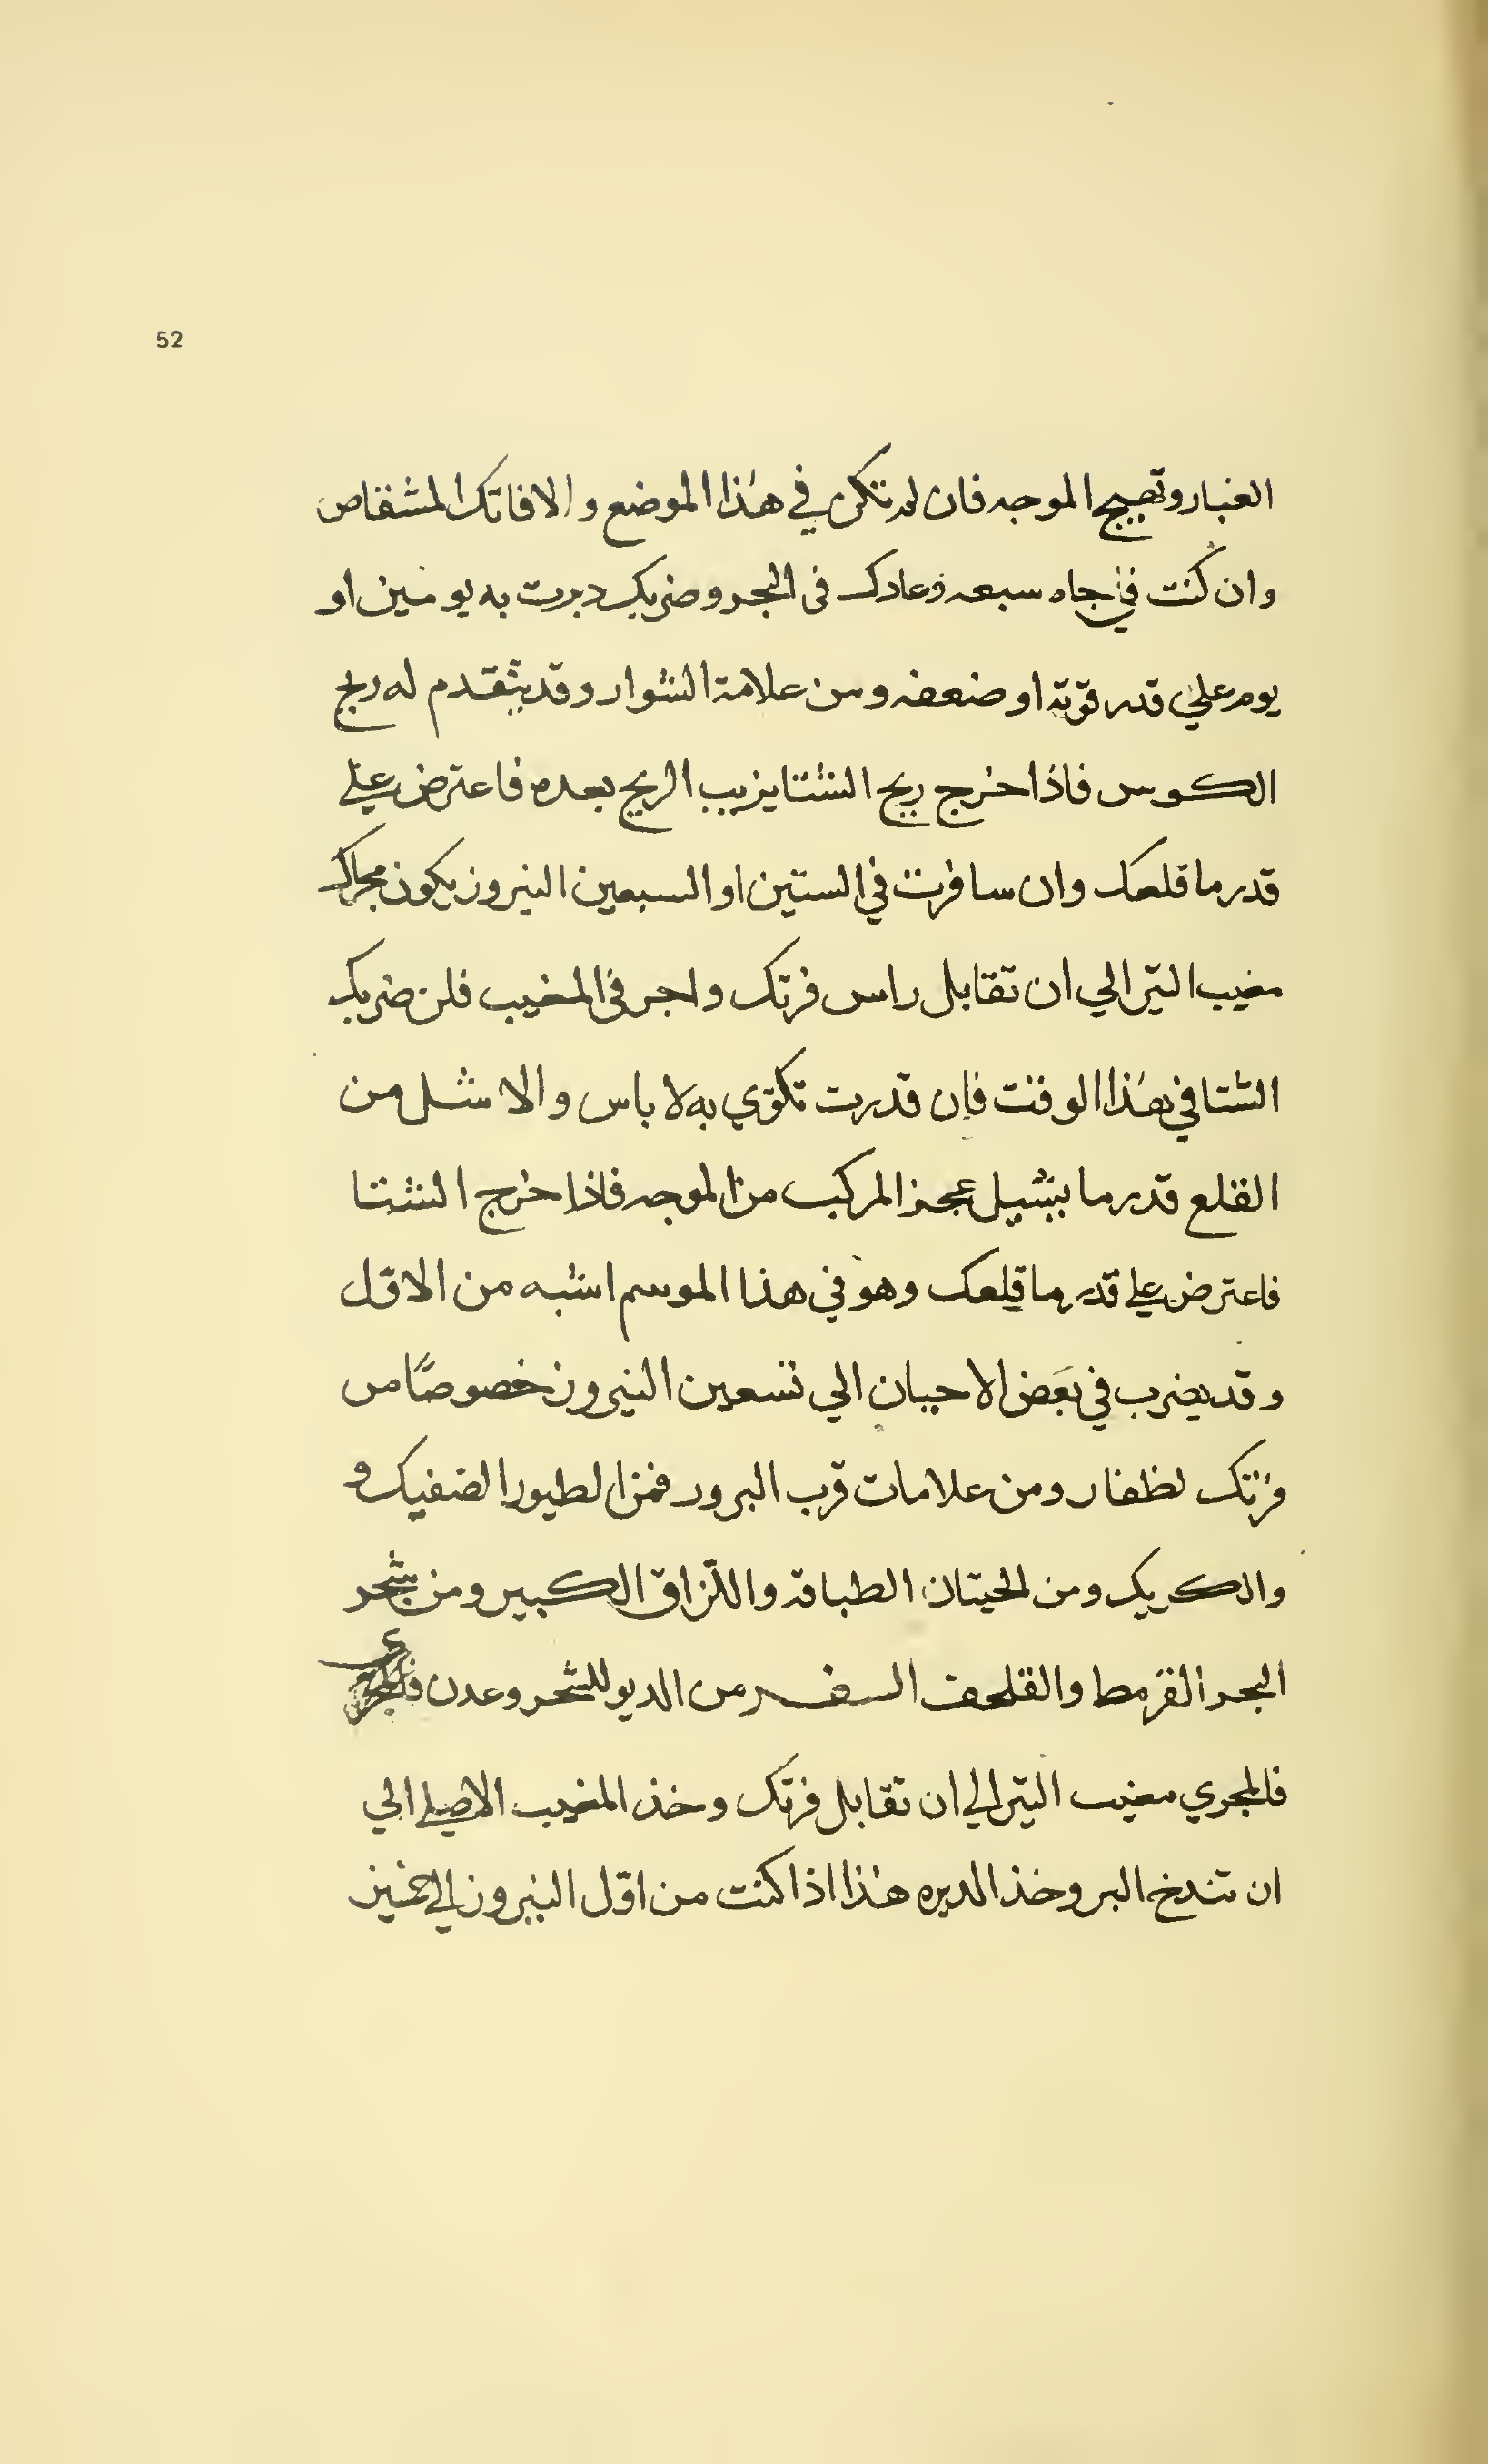 52
الغبار وتهيج الموجه فان لم تكري في هذا الموضع والا فاتك المشقاص
وان كنت في جاه سبعه وعادك فى البحر وضربك دبرت به يومين او
يوم علي قدر قوّته او ضعفه ومن علامة الشوار وقد يتقدم له ريح
الكوس فاذا خرج ريح الشتا يزيب الريح بعده فاعترض علي
قدر ما قلعك وان سافرت في الستين او السبعين النيروز يكون مجراك
مغيب التير الي ان تقابل راس فرتك واجر فى المغيب فلن ضربك
الشتا في هذا الوقت فان قدرت تكوّي به لا باس والا شل من
القلع قدر ما يشيل عجز المركب من الموجه فاذا خرج الشتا
فاعترض علي قدر ما قلعك وهو في هذا الموسم اشبه من الاوّل
وقد يضرب في بعض الاحيان الي تسعين النيروز خصوصًا من
فرتك لظفار ومن علامات قرب البرور فمن الطيور الضفيك و
والكريك ومن الحيتان الطباقه واللّزاق الكبير ومن شجر
البحر القرمط والقلحف السفر من الديو للشحر وعدن
فالمجري مغيب التير الي ان تقابل فرتك وخذ المغيب الاصلي الي
ان تندخ البر وخذ الديره هذا اذا كنت من اوّل النيروز الي خمسين